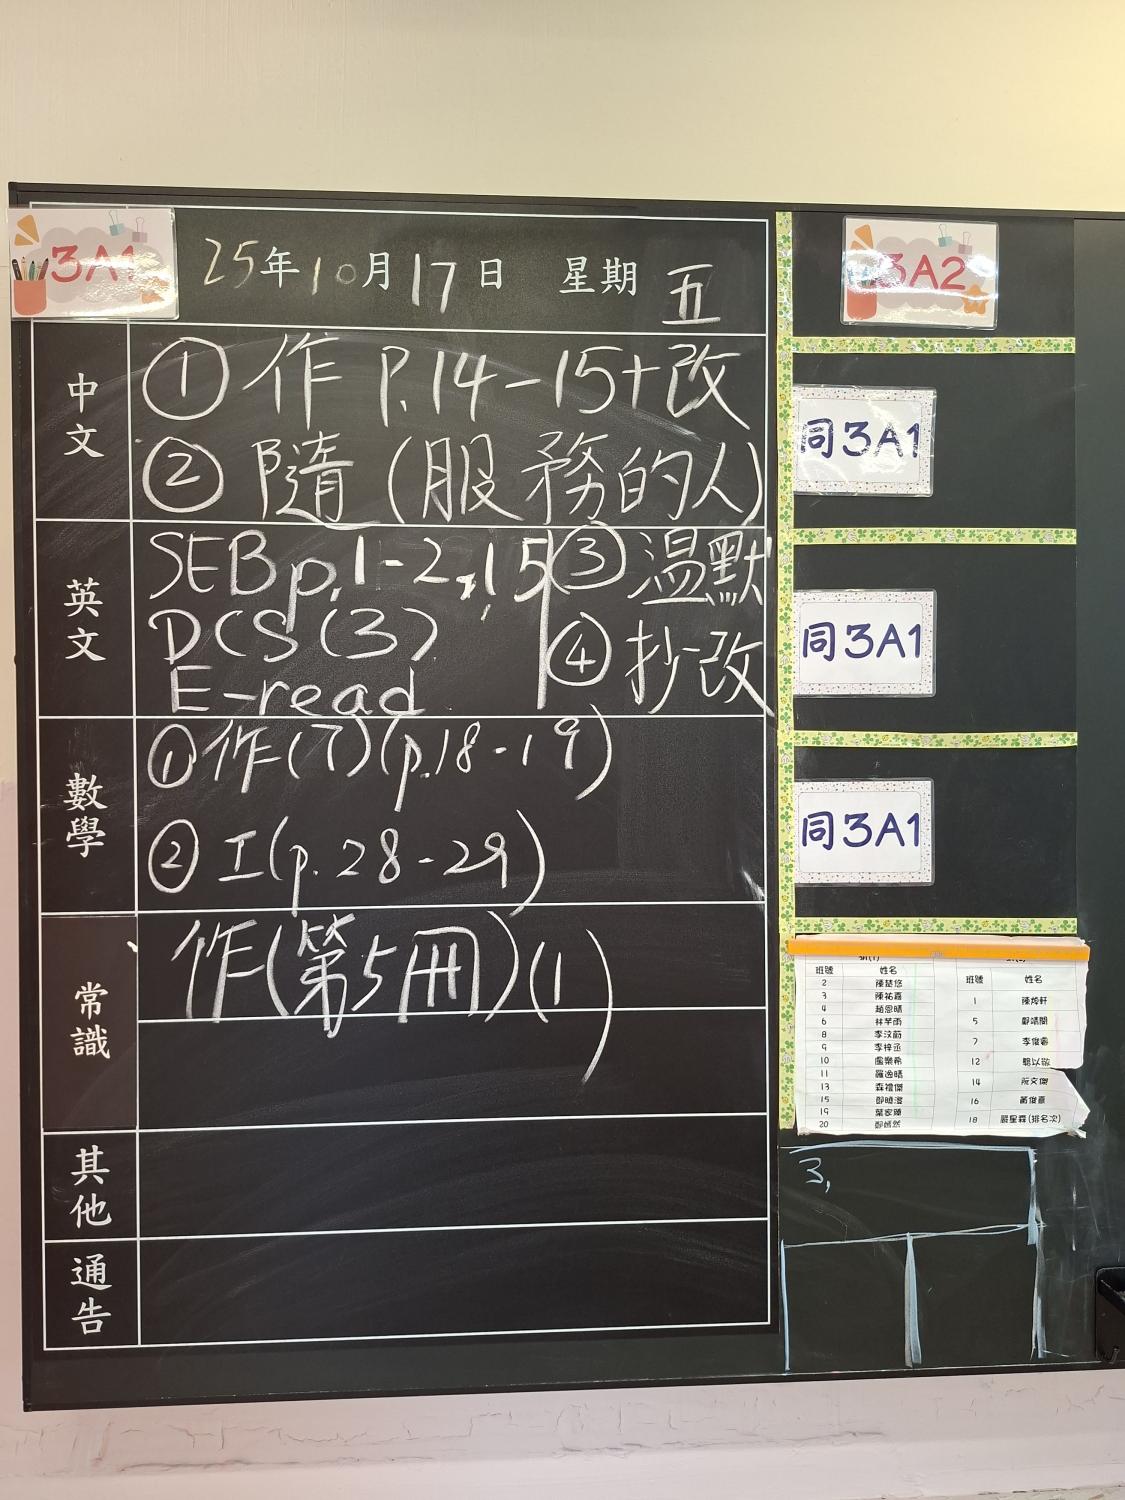 3A1
25年10月17日 星期五
中文
① 作 P.14-15+改
② 隨(服務的人)
③ 溫默
④ 抄改
英文
SEB p.1-2, 15
DCS(3)
E-read
數學
① 作(7)(p.18-19)
② 工(p.28-29)
常識
作(第5冊)(1)
其他
通告
3A2
同3A1
同3A1
同3A1
班號 姓名 班號 姓名
2
3
4
6 林芊雨
8
9 李梓丞
10 盧樂希
11
13
15
19
20
1
5
7 李俊睿
12
14 阮文傑
16
18 (排名次)
3,